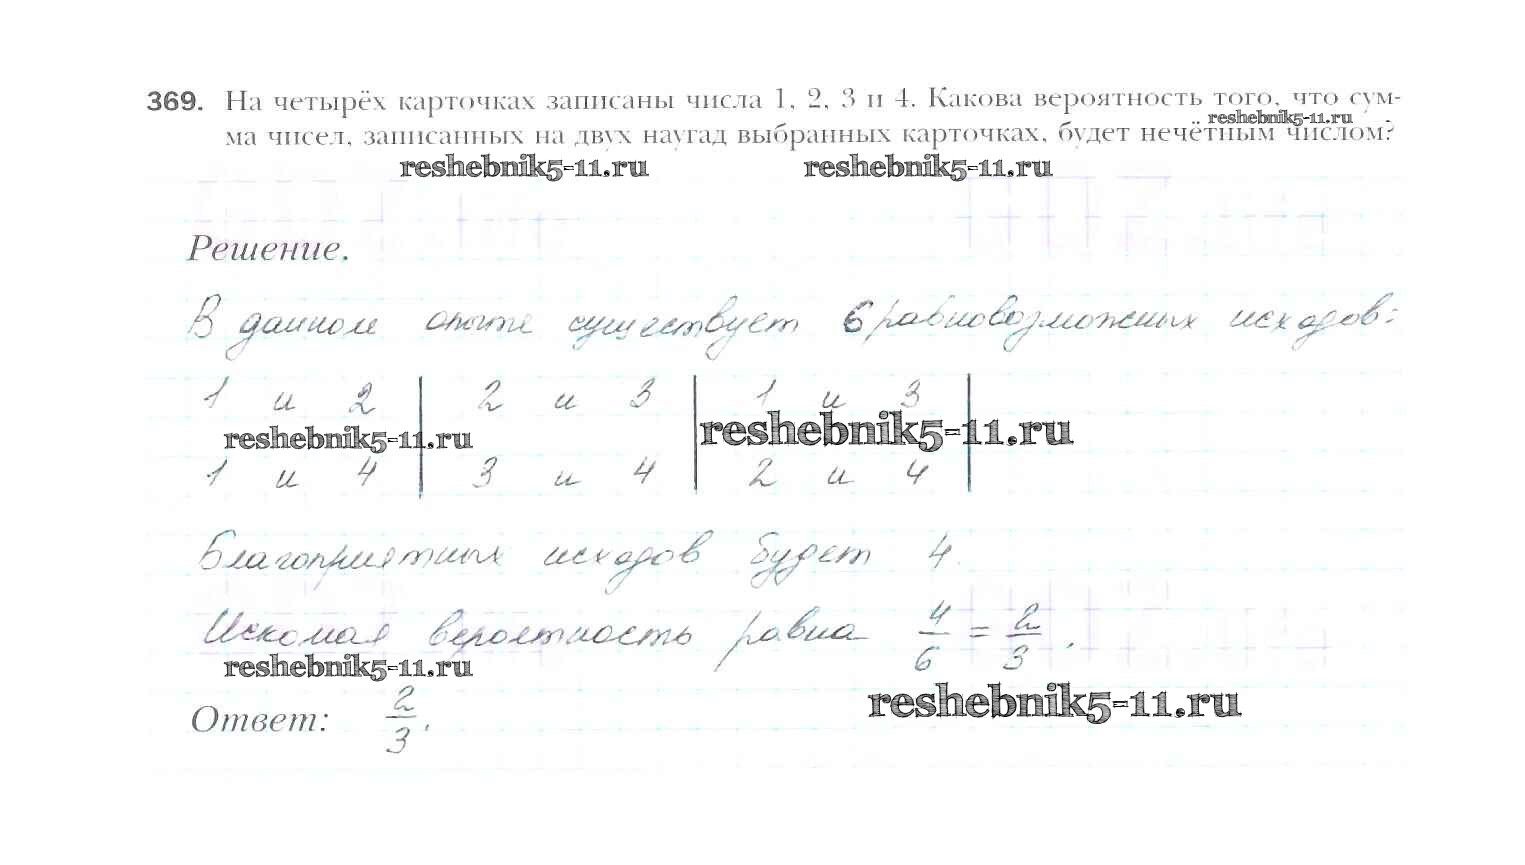 369. На четырёх карточках записаны числа 1, 2, 3 и 4. Какова вероятность того, что сум-
reshebnik5-11.ru
ма чисел, записанных на двух наугад выбранных карточках, будет нечётным числом?
reshebnik5-11.ru reshebnik5-11.ru
Решение.
В данном опыте существует 6 равновозможных исходов:
1 и 2 | 2 и 3 | 1 и 3
reshebnik5-11.ru reshebnik5-11.ru
1 и 4 | 3 и 4 | 2 и 4
Благоприятных исходов будет 4.
Искомая вероятность равна 4/6 = 2/3.
reshebnik5-11.ru
reshebnik5-11.ru
Ответ: 2/3.